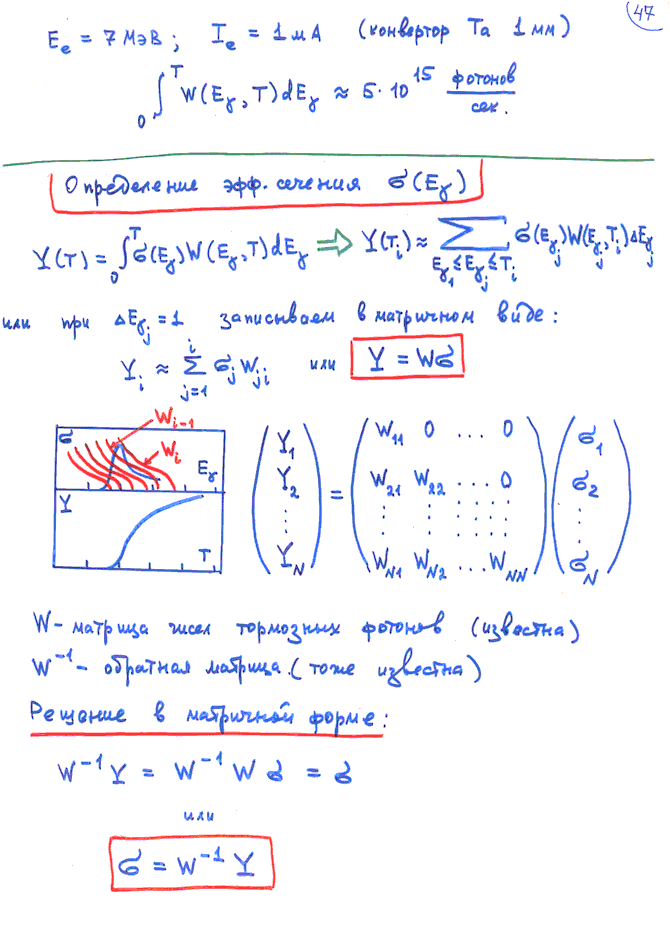 47
E_e = 7 МэВ ; I_e = 1 мА (конвертор Ta 1 мм)
∫₀ᵀ W(E_γ, T) dE_γ ≈ 5·10¹⁵ фотонов/сек.
Определение эфф. сечения σ(E_γ)
Y(T) = ∫₀ᵀ σ(E_γ) W(E_γ, T) dE_γ ⇒ Y(T_i) ≈ Σ_{E_γ1 ≤ E_γj ≤ T_i} σ(E_γj) W(E_γj, T_i) ΔE_γj
или при ΔE_γj = 1 записываем в матричном виде:
Y_i ≈ Σ_{j=1}^{i} σ_j W_ji или Y = Wσ
W_{i-1}
σ W_i E_γ
Y T
Y_1 W_11 0 ... 0 σ_1
Y_2 = W_21 W_22 ... 0 σ_2
Y_N W_N1 W_N2 ... W_NN σ_N
W - матрица чисел тормозных фотонов (известна)
W⁻¹ - обратная матрица. (тоже известна)
Решение в матричной форме:
W⁻¹ Y = W⁻¹ W σ = σ
или
σ = W⁻¹ Y